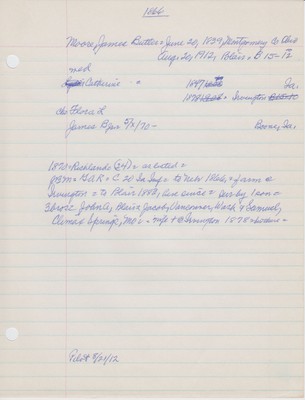 1866
Moore, James Butler = June 20, 1839, Montgomery Co Ohio
Aug. 20, 1912, Blair = B 15-12
md
Catherine " 1847 Ia.
1878 = Irvington
ch: Flora L
James Ben 5/2/70 - Boone, Ia.
1870 = Richlands (24) = as listed =
= G.A.R = C 20 Ia Inf = to Nebr 1866 = farm @
Irvington = to Blair 1898, live since = sur by 1 son =
3 bro: John, Blair = Jacob, Vancouver, Wash & Samuel,
Climax Springs, Mo = wife + @ Irvington 1878 =
Pilot 8/21/12